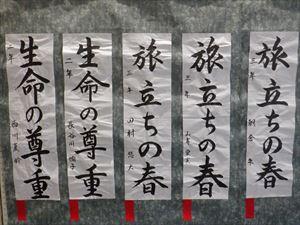 旅立ちの春
三年
旅立ちの春
三年
旅立ちの春
三年 田村 悠大
生命の尊重
二年 長谷川
生命の尊重
二年